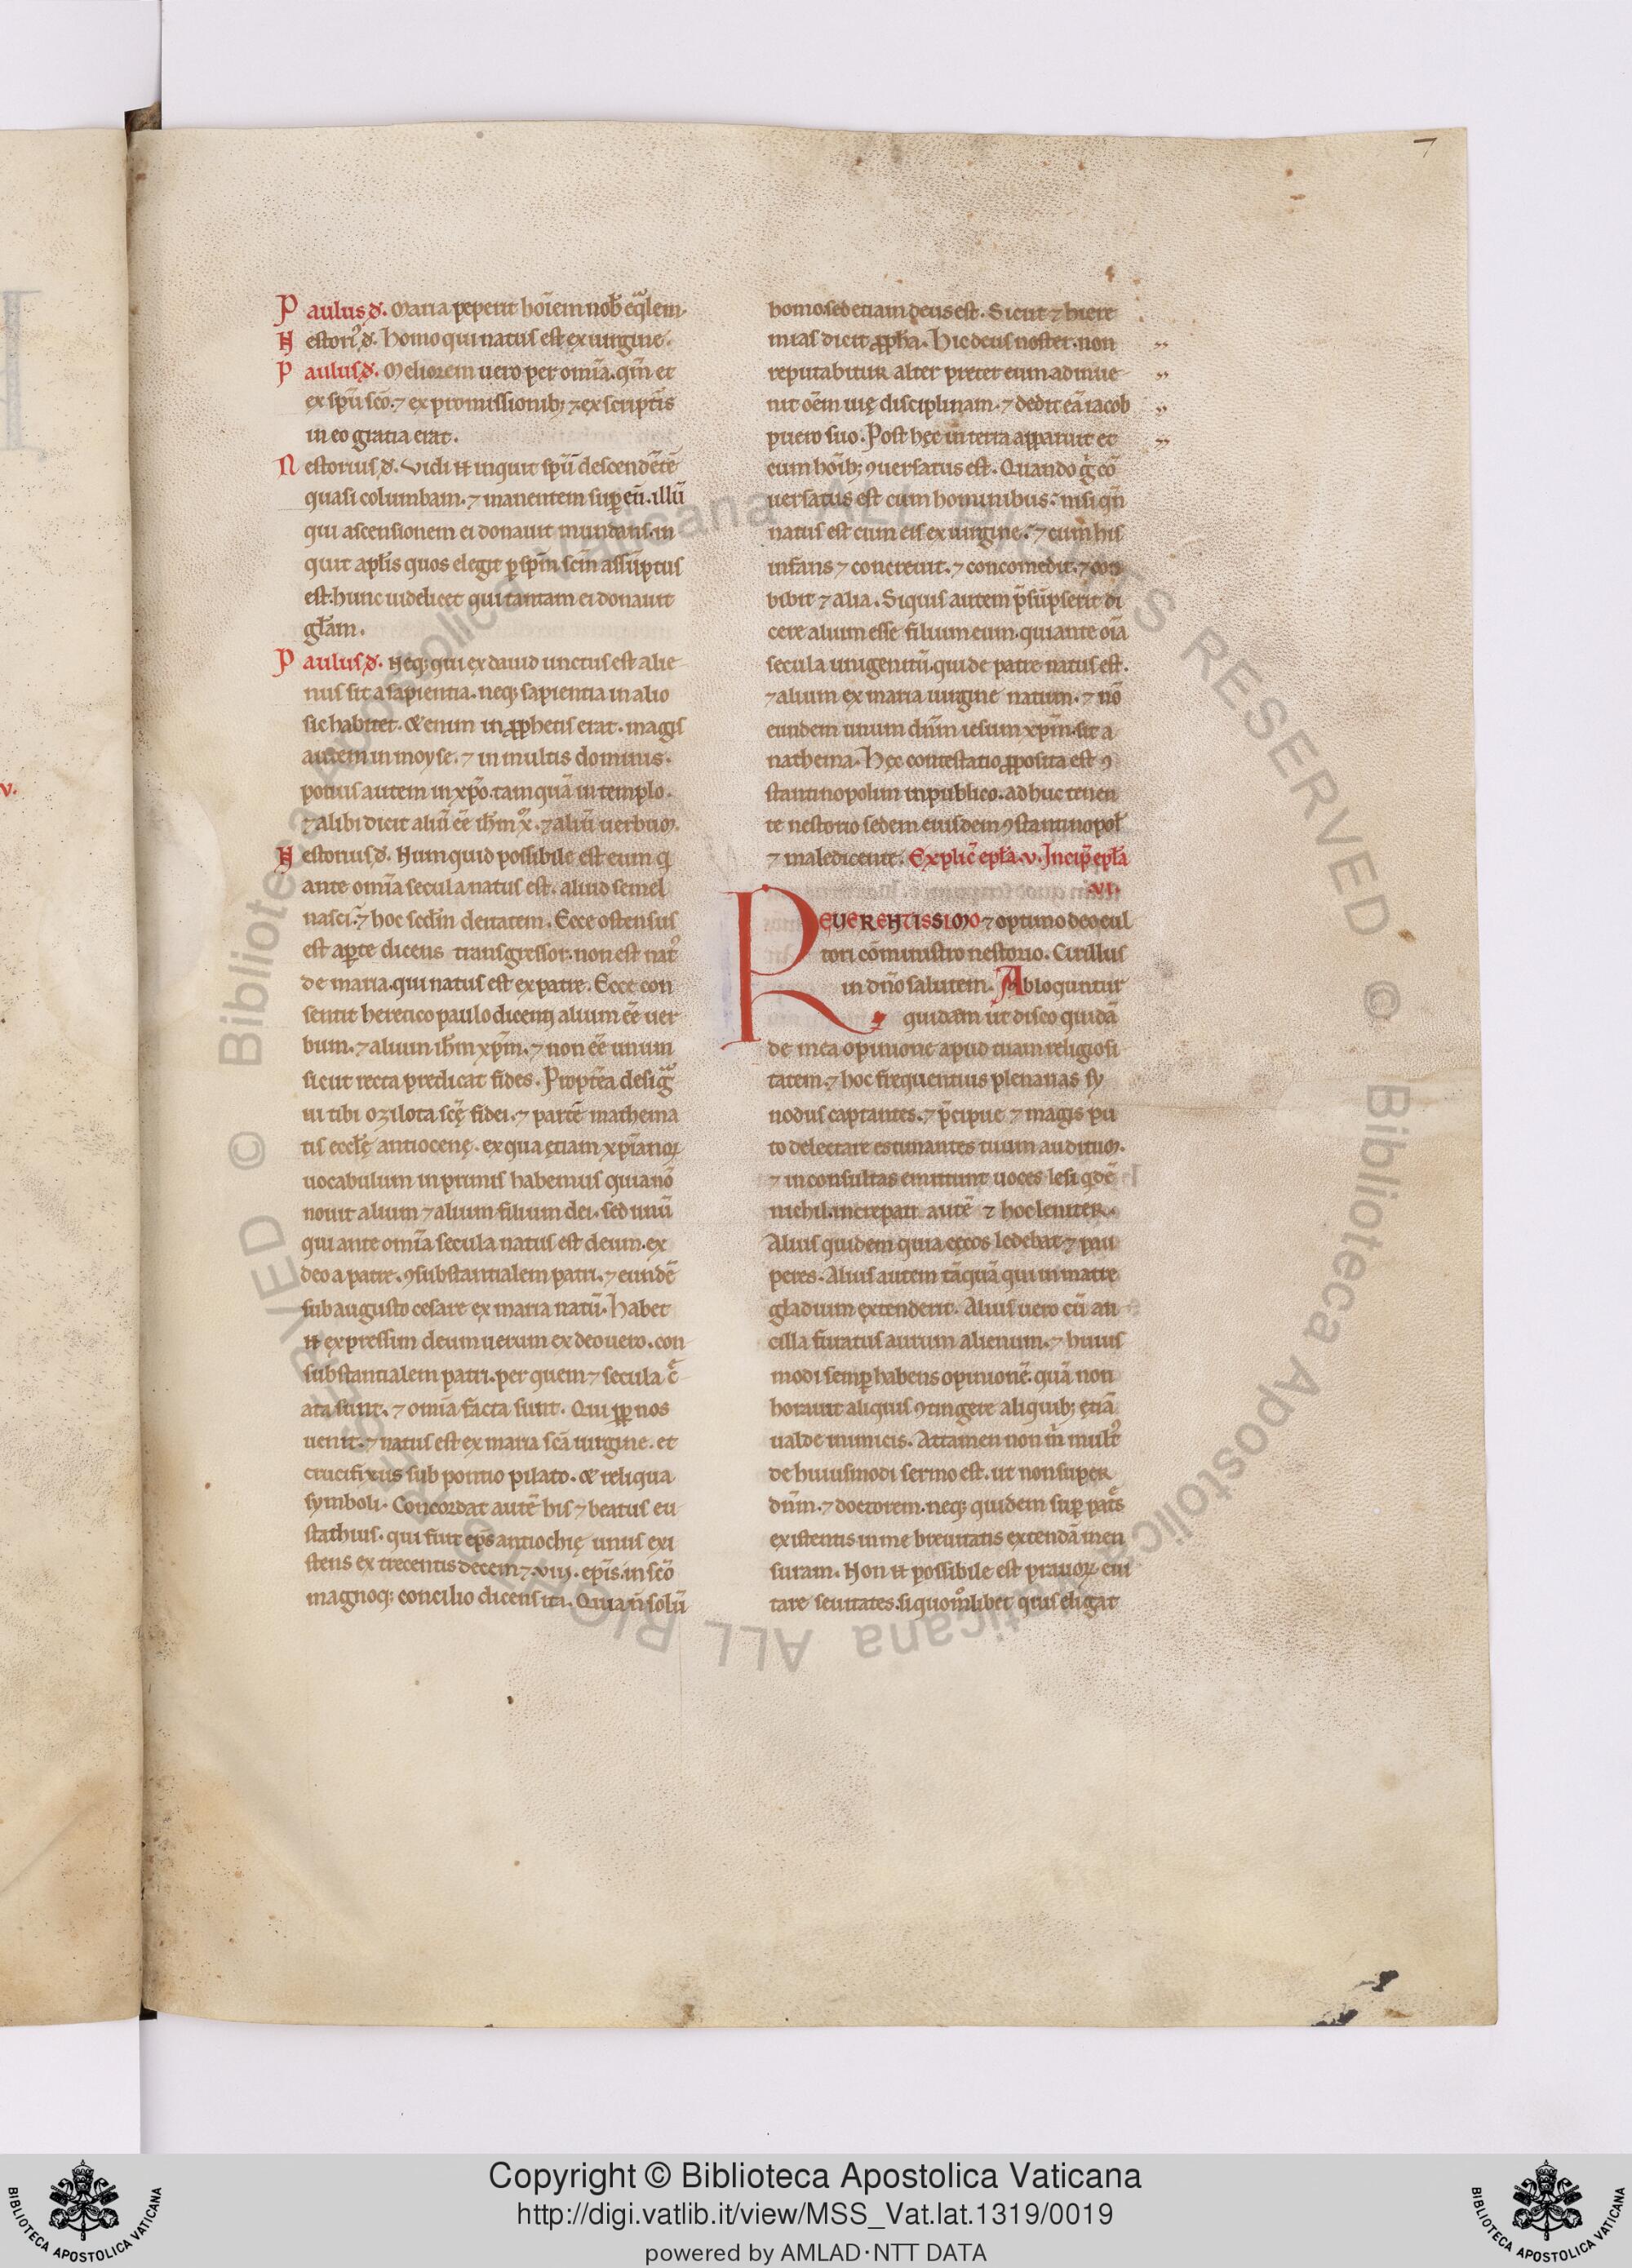 7
Paulus đ. Maria peperit hoīem nob̄ eq̄lem.
Nestori᾽ đ. Homo qui natus est ex uirgine.
Paulus đ. Meliorem uero per omīa. qm̄ et
ex spū scō. ⁊ ex promissionib; ⁊ ex scriptis
in eo gratia erat.
Nestorius đ. Vidi n̄ inquit spū descendētē
quasi columbam. ⁊ manentem sup eū. illū
qui ascensionem ei donauit mundans. in
quit aplīs quos elegit p spm̄ scm̄ assūptus
est. hunc uidelicet qui tantam ei donauit
glam̄.
Paulus đ. Neq; qui ex dauid unctus est alie
nus sit a sapientia. neq; sapientia in alio
sic habitet. & enim in pphetis erat. magis
autem in moyse. ⁊ in multis dominis.
potius autem in xp̄o. tamquā in templo.
⁊ alibi dicit aliū eē ihm̄ x̄. ⁊ aliū uerbum.
Nestorius đ. Numquid possibile est eum q
ante omīa secula natus est. aliud semel
nasci. ⁊ hoc scdm̄ deitatem. Ecce ostensus
est apte dicens transgressor. non est nat᾽
de maria. qui natus est ex patre. Ecce con
sentit heretico paulo dicenti alium eē uer
bum. ⁊ alium ihm̄ xpm̄. ⁊ non eē unum
sicut recta predicat fides. Proptea desig
ui tibi o zilota scę fidei. ⁊ partē mathema
tis ecclę antiocenę. ex qua etiam xp̄ianoꝝ
uocabulum in primis habemus quia nō
nouit alium ⁊ alium filium dei. sed unū
qui ante omīa secula natus est deum. ex
deo a patre. ꝯsubstantialem patri. ⁊ eundē
sub augusto cesare ex maria natū. Habet
n̄ expressim deum uerum ex deo uero. con
substantialem patri. per quem ⁊ secula c̄
ata sunt. ⁊ omīa facta sunt. Qui ꝓp nos
uenit. ⁊ natus est ex maria scā uirgine. et
crucifixus sub pontio pilato. & reliqua
symboli. Concordat autē his ⁊ beatus eu
stathius. qui fuit ep̄s antiochię unus exi
stens ex trecentis decem ⁊ .viij. ep̄is. in scō
magnoq; concilio dicens ita. Quia n̄ solū
homo. sed etiam deus est. Sicut ⁊ hiere
mias dicit ꝓpha. Hic deus noster. non
reputabitur alter preter eum. adinue
nit oēm uię disciplinam. ⁊ dedit eā iacob
puero suo. Post hęc in terra apparuit et
cum hoīb; ꝯuersatus est. Quando g cō
uersatus est cum hominibus. nisi qn̄
natus est cum eis ex uirgine. ⁊ cum his
infans ⁊ concreuit. ⁊ concomedit. ⁊ con
bibit ⁊ alia. Siquis autem p̄sūpserit di
cere alium esse filium eum. qui ante oīa
secula unigenitū. qui de patre natus est.
⁊ alium ex maria uirgine natum. ⁊ nō
eundem unum dnm̄ iesum xpm̄. sit a
nathema. Hęc contestatio ꝓposita est ꝯ
stantinopolim in publico. adhuc tenen
te nestorio sedem eiusdem ꝯstantinopol̄
⁊ maledicente. Explic̄ epl̄a .v. Incip̄ epl̄a
.VI.
REVERENTISSIMO ⁊ optimo deo cul
tori cōministro nestorio. Cirillus
in dn̄o salutem. Abloquntur
quidam ut disco quidā
de mea opinione apud tuam religiosi
tatem. ⁊ hoc frequentius plenarias sy
nodus captantes. ⁊ p̄cipue ⁊ magis pu
to delectare estimantes tuum auditum.
⁊ inconsultas emittunt uoces lesi qdē
nichil. increpati autē ⁊ hoc leniter.
Alius quidem quia cęcos ledebat ⁊ pau
peres. Alius autem tāquā qui in matre
gladium extenderit. Alius uero cū an
cilla furatus aurum alienum. ⁊ huius
modi semp habens opinionē. quā non
horauit aliquis ꝯtingere aliquib; etiā
ualde inimicis. Attamen non m̄ mult᾽
de huiusmodi sermo est. ut non super
dnm̄. ⁊ doctorem. neq; quidem sup pat̄s
existentis in me breuitatis extendā men
suram. Non n̄ possibile est prauoꝝ eui
tare seuitates. si quomolibet quis eligat
Copyright © Biblioteca Apostolica Vaticana
http://digi.vatlib.it/view/MSS_Vat.lat.1319/0019
powered by AMLAD·NTT DATA
BIBLIOTECA APOSTOLICA VATICANA
BIBLIOTECA APOSTOLICA VATICANA
© Biblioteca Apostolica Vaticana ALL RIGHTS RESERVED
© Biblioteca Apostolica Vaticana ALL RIGHTS RESERVED